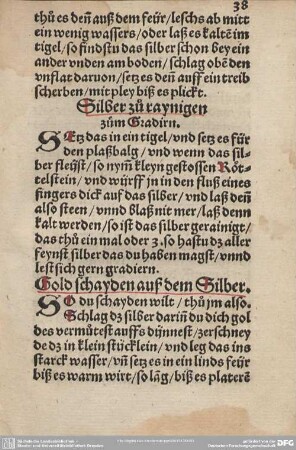 38
thů es deñ auß dem feür/leschs ab mitt
ein wenig wassers/oder laß es kalts im
tigel/so findstu das silber schon bey ein
ander vnden am boden/schlag obẽ den
vnflat daruon/setz es deñ auff ein treib
scherben/mit pley biß es plickt.
Silber zů raynigen
zům Gradirn.
SEtz das in ein tigel/vnd setz es für
den plaßbalg/vnd wenn das sil-
ber fleüst/so nym̃ kleyn gestossen Röt-
telstein/vnd würff jn in den fluß eines
fingers dick auf das silber/vnd laß deñ
also steen/vnnd blaß nit mer/laß denn
kalt werden/so ist das silber gerainigt/
das thů ein mal oder 3. so hastu dz aller
feynst silber das du haben magst/vnnd
lest sich gern gradiern.
Gold schayden auf dem Silber.
SO du schayden wilt/thů jm also.
Schlag dz silber dariñ du dich gol
des vermůtest auffs dynnest/zerschney
de dz in klein stücklein/vnd leg das ins
starck wasser/vñ setz es in ein linds feür
biß es warm wirt/so läg/biß es platerẽ